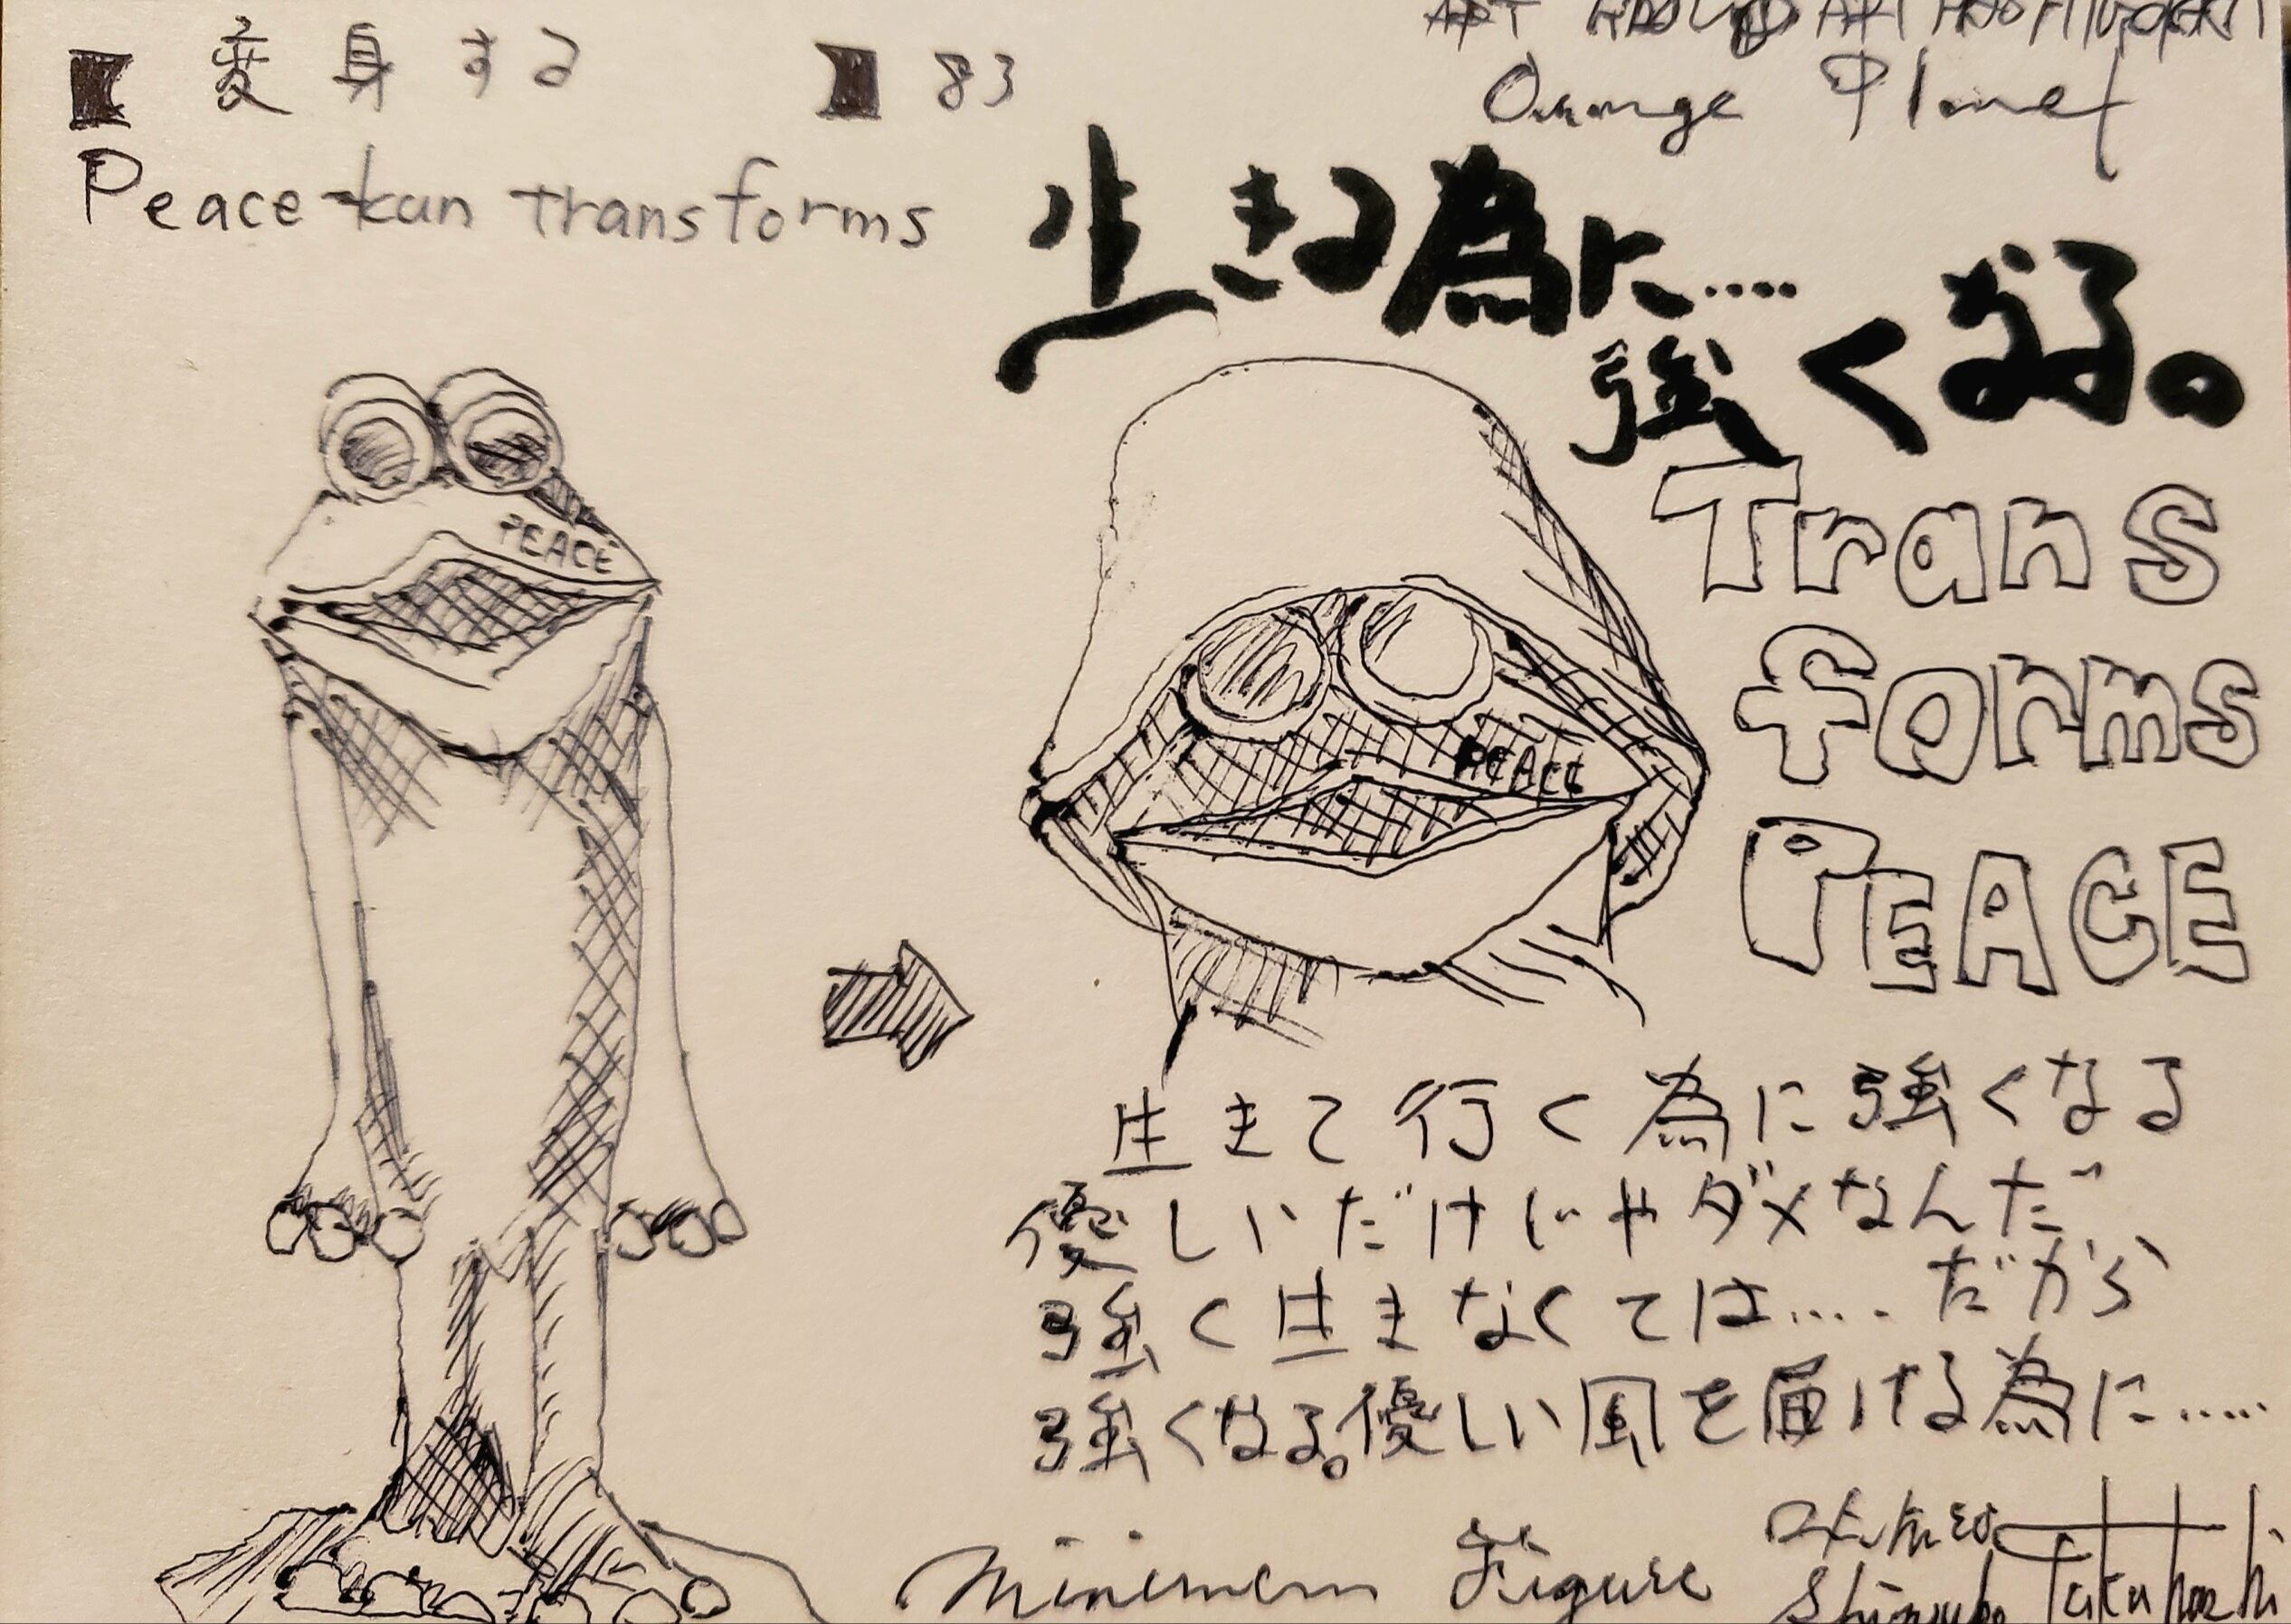 変身する 83
Peace-kun transforms
Orange Planet
生きる為に....
強くなる。
Trans
forms
PEACE
PEACE
PEACE
生きて行く為に強くなる
優しいだけじゃダメなんだ
強く生きなくては.... だから
強くなる。優しい風を届ける為に.....
Minimum Figure
Takahashi